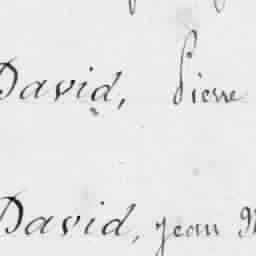 David, Pierre
David, jean